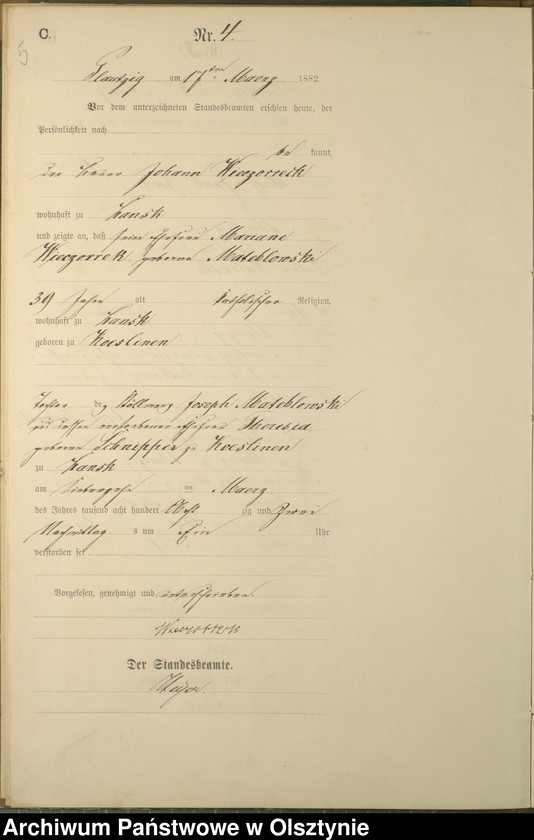 C.
Nr. 4.
5
Plautzig am 17ten Maerz 1882.
Vor dem unterzeichneten Standesbeamten erschien heute, der
Persönlichkeit nach
be kannt,
der Johann Wieczorreck
wohnhaft zu Lansk
und zeigte an, daß seine Ehefrau Mariane
Wieczorrek geborene Mateblowski
39 Jahre alt katholischer Religion,
wohnhaft zu Lansk
geboren zu Koeslinen
Tochter des Joseph Mateblowski
und dessen verstorbenen Ehefrau Theresia
geborene Schnipper zu Koeslinen
zu Lansk
am Siebenzehn ten Maerz
des Jahres tausend acht hundert Acht zig und Zwei
Nachmittag s um Ein Uhr
verstorben sei
Vorgelesen, genehmigt und unterschrieben
Der Standesbeamte.
Archiwum Państwowe w Olsztynie